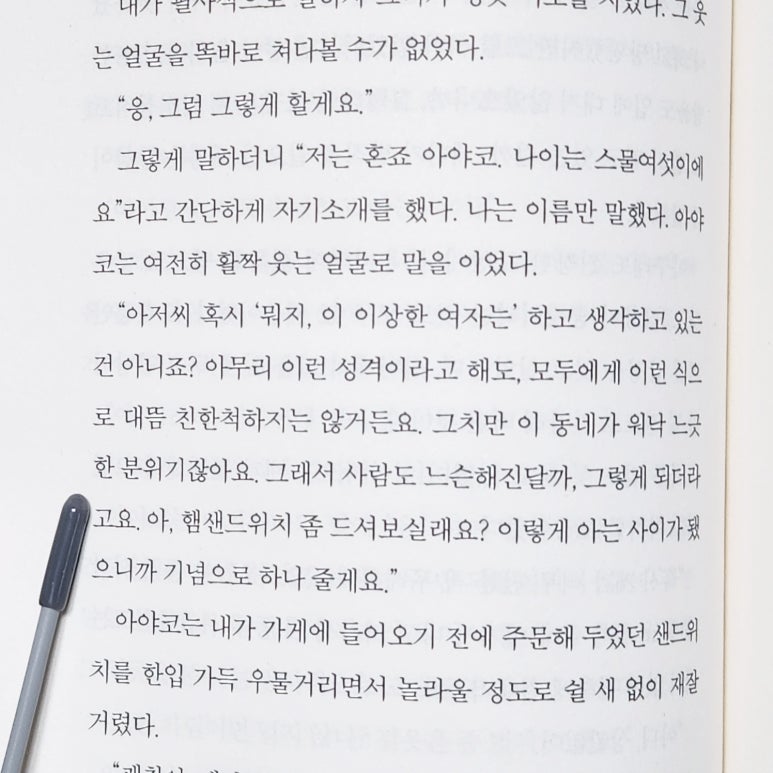 내가 필사적으로 말하자 그녀가 방긋 미소를 지었다. 그 웃
는 얼굴을 똑바로 쳐다볼 수가 없었다.
“응, 그럼 그렇게 할게요.”
그렇게 말하더니 “저는 혼죠 아야코. 나이는 스물여섯이에
요”라고 간단하게 자기소개를 했다. 나는 이름만 말했다. 아야
코는 여전히 활짝 웃는 얼굴로 말을 이었다.
“아저씨 혹시 ‘뭐지, 이 이상한 여자는’ 하고 생각하고 있는
건 아니죠? 아무리 이런 성격이라고 해도, 모두에게 이런 식으
로 대뜸 친한척하지는 않거든요. 그치만 이 동네가 워낙 느긋
한 분위기잖아요. 그래서 사람도 느슨해진달까, 그렇게 되더라
고요. 아, 햄샌드위치 좀 드셔보실래요? 이렇게 아는 사이가 됐
으니까 기념으로 하나 줄게요.”
아야코는 내가 가게에 들어오기 전에 주문해 두었던 샌드위
치를 한입 가득 우물거리면서 놀라울 정도로 쉴 새 없이 재잘
거렸다.